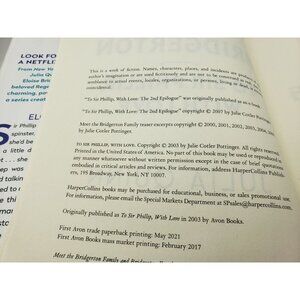 LOOK FO
A NETFLI
From New Yo
Julia Qu
Eloise Brid
beloved Rege
charming, po
a series creat
EL
Sir Phillip
spinster,
she'd be
a little d
he
BRIDGERTON
This is a work of fiction. Names, characters, places, and incidents are
author's imagination or are used fictitiously and are not to be construed
blance to actual events, locales, organizations, or persons, living or dead,
cidental.
"To Sir Phillip, With Love: The 2nd Epilogue" was originally published as an e-book
"To Sir Phillip, With Love: The 2nd Epilogue" copyright © 2007 by Julie Cotler Pottinger.
Meet the Bridgerton Family teaser excerpts copyright © 2000, 2001, 2002, 2003, 2004,
by Julie Cotler Pottinger.
TO SIR PHILLIP, WITH LOVE. Copyright © 2003 by Julie Cotler Pottinger.
Printed in the United States of America. No part of this book may be used or reproduced in
any manner whatsoever without written permission except in the case of brief quotations
embodied in critical articles and reviews. For information, address HarperCollins
ers, 195 Broadway, New York, NY 10007.
HarperCollins books may be purchased for educational, business, or sales promotional use.
For information, please email the Special Markets Department at SPsales@harpercollins.com.
Originally published as To Sir Phillip, With Love in 2003 by Avon Books.
First Avon trade paperback printing: May 2021
First Avon Books mass market printing: February 2017
Meet the Bridgerton Family and